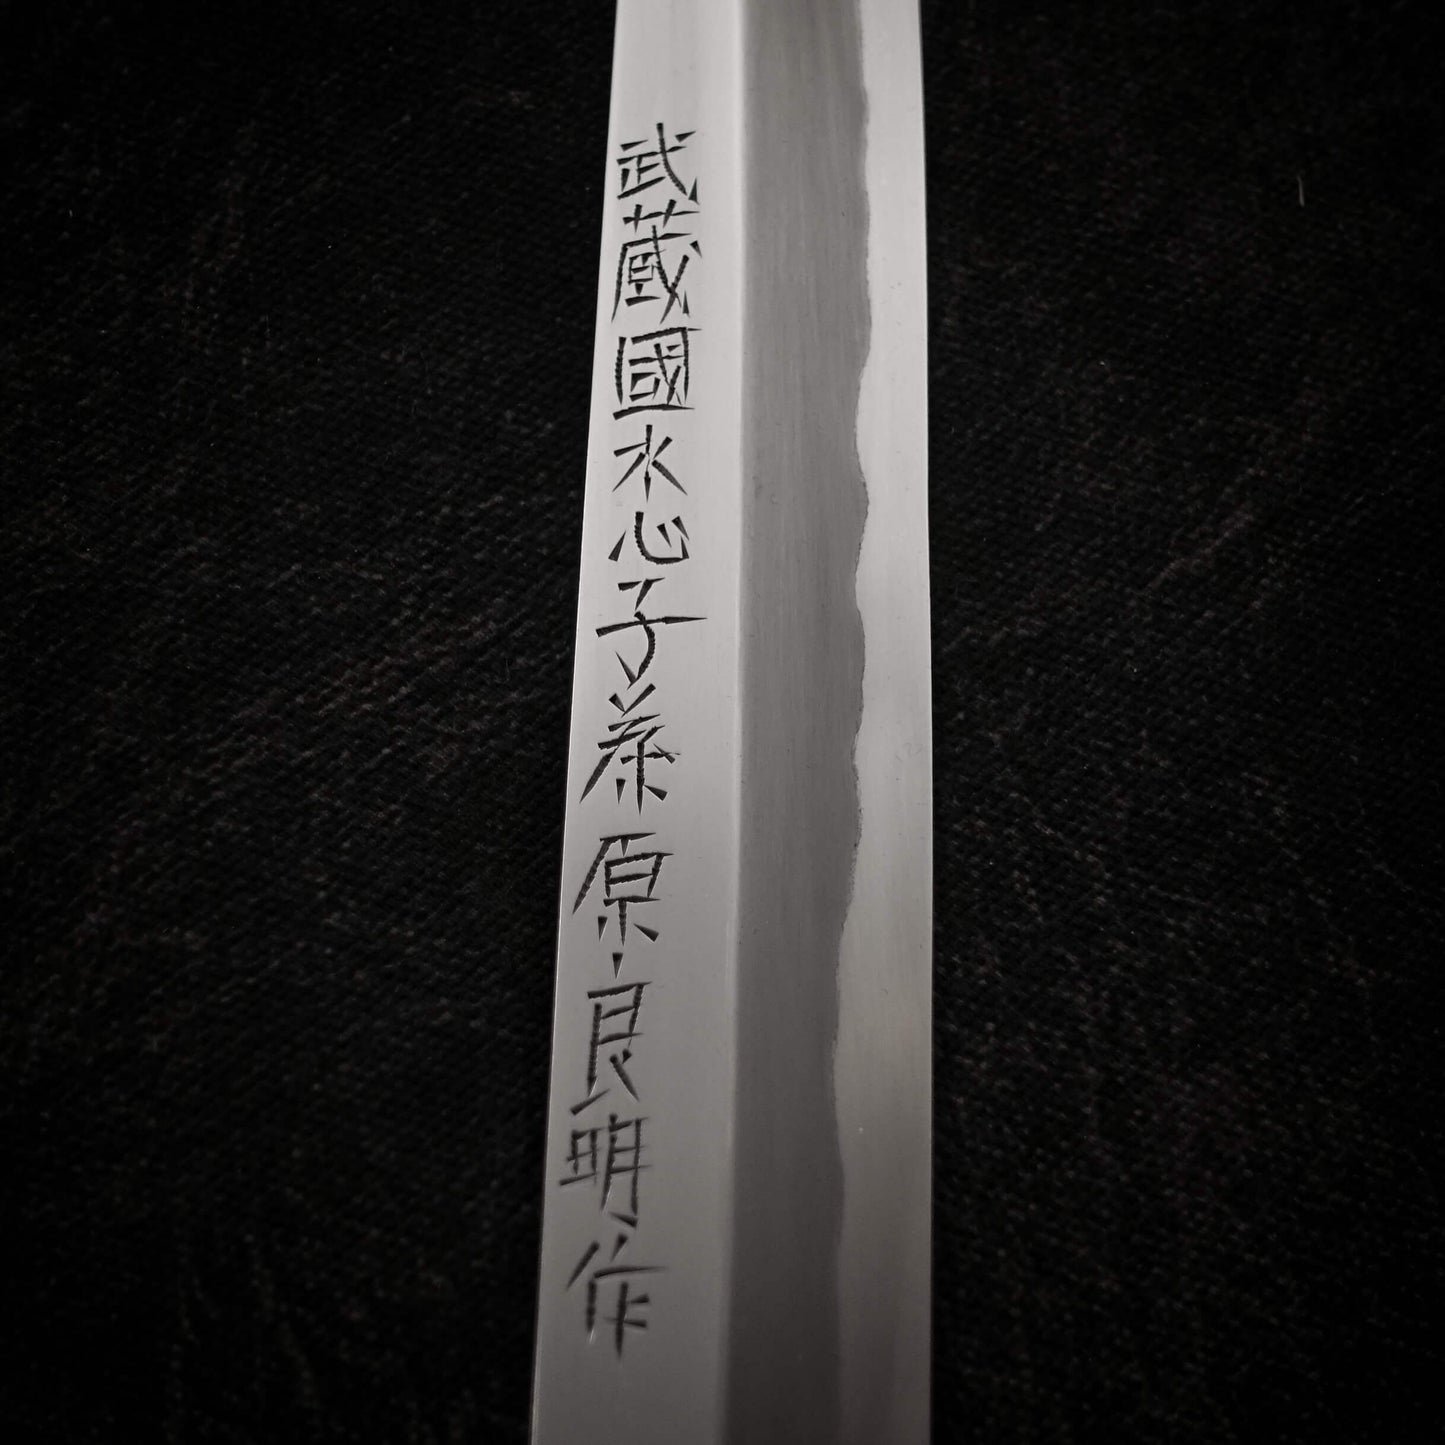 武蔵國水心子藤原良明作